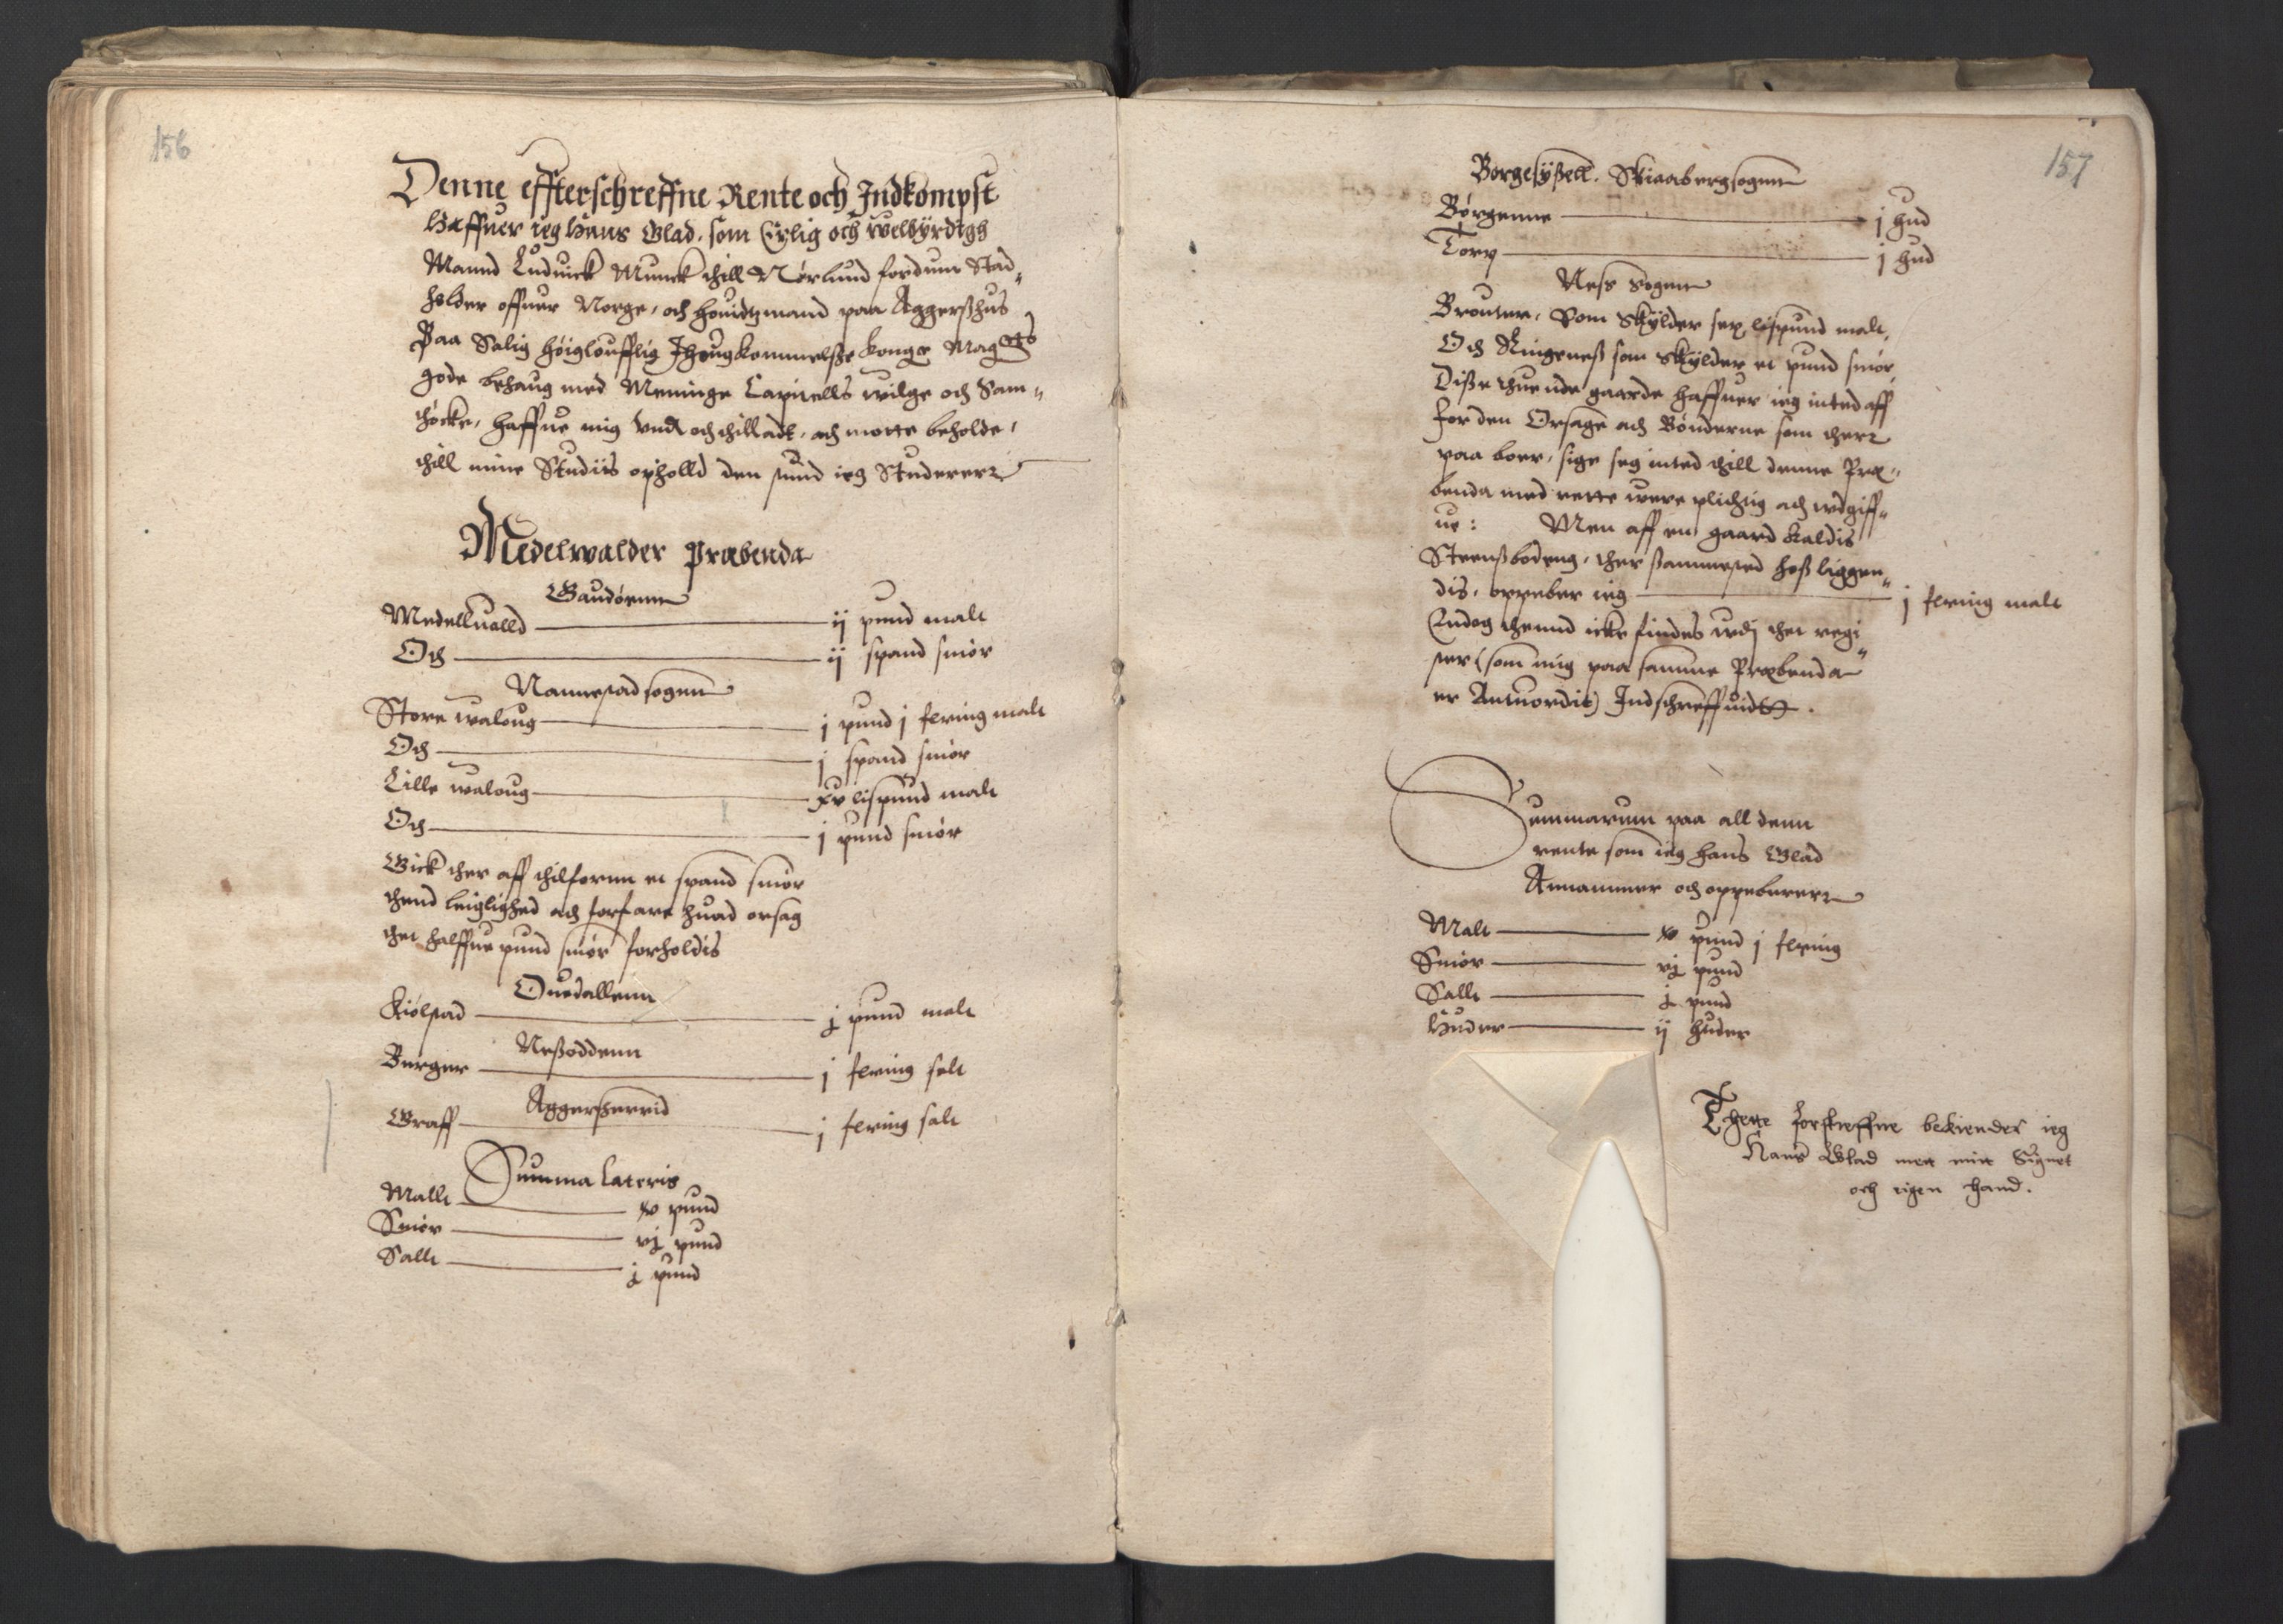 156
Denne effterschreffne Rente och Indkompst
Haffuer ieg Hans Glad, som Erlig och welbyrdigh
Mannd Luduick Munck thill Nørlund fordum Stad„
holder offuer Norge, och houidtzmand paa Aggerßhus
Paa Salig høigloufflig Ihougkommelße kong: Mag:tts
gode behaug med Meninge Capitells wilge och Sam„
thøcke, haffue mig vnd och thilladt, och motte beholde,
thill mine Studiis ophold den stund ieg Studererr
Medelwalder Præbenda
Gaudørum
Medelluolld — ij pund malt
Och — ij spand smør
Nannestad sogenn
Store waloug — j pund j fering malt
Och — j spand smør
Lille waloug — xv lispund malt
Och — j pund smør
Gick ther aff thilforne et spand smør
thend leiglighed ach forfare huad orsag
thet halffue pund smør forholdis
Ouedallenn
Kiølstad — j pund malt
Neßoddenn
Berger — j fering salt
Aggerßherrid
Graff — j fering salt
Summa Lateris
Mallt — xv pund
Smør — vj pund
Sallt — j pund
157
Borgesyßell. Skiaabergsogenn
Børgenne — j hud
Torp — j hud
Ness Sogenn
Brouter, Som Skylder sex lispund malt,
Och Ringeneß som skylder et pund smør,
Diße thuende gaarde haffuer ieg inted aff
for den Orsage ach Bønderne som therr
paa boer, sige seg inted thill denne Præ„
benda med rette were plichtig ach wdgiff„
ue: Men aff en gaard kaldis
Steenßbodeng, ther sammested hoß liggen„
dis, oppeber ieg — j fering malt
Endog thennd icke findes wdj thet regi„
ster (som mig paa samme Præbenda
er Antuordit) Indschreffuidtt.
Summarum paa all denn
rente som ieg Hans Glad
Annammer och oppebererr
Malt — xv pund j fering
Smør — vj pund
Sallt — j pund
Huder — ij huder
Thette forskreffne bekiender ieg
Hans Glad mett mitt Signet
och eigen hand.